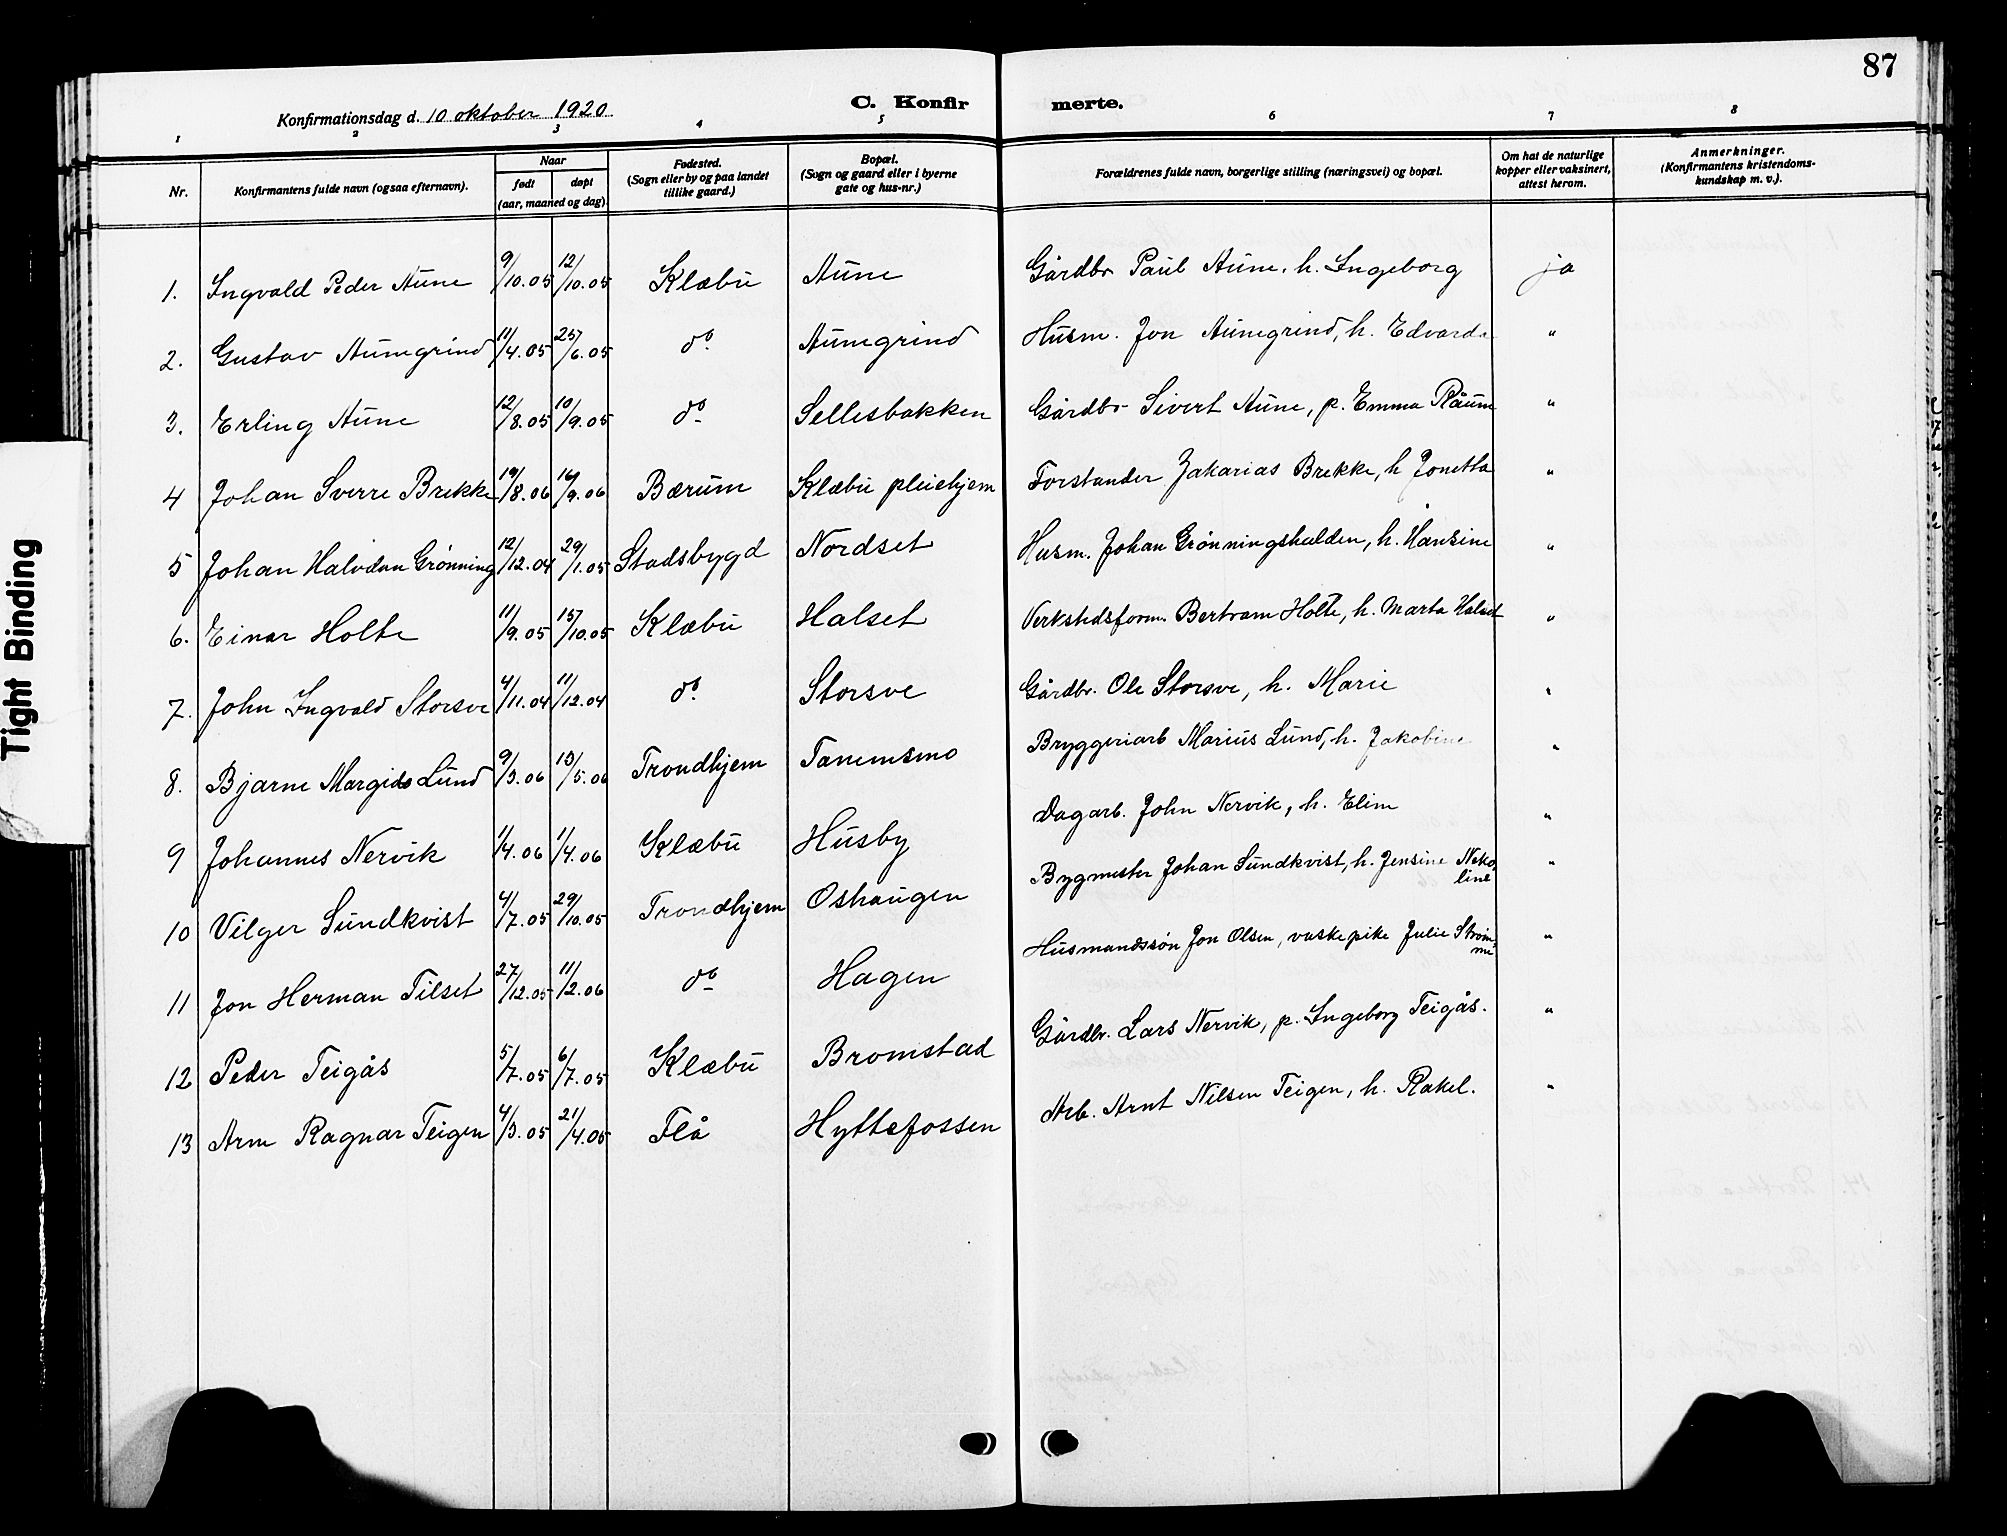 87
Konfirmationsdag d. 10 oktober 1920
C. Konfir merte.
1 2 3 4 5 6 7 8
Nr. Konfirmantens fulde navn (ogsaa efternavn). Naar født døpt (aar, maaned og dag) Fødested. (Sogn eller by og paa landet tillike gaard.) Bopæl. (Sogn og gaard eller i byerne gate og hus-nr.) Forældrenes fulde navn, borgerlige stilling (næringsvei) og bopæl. Om hat de naturlige kopper eller vaksinert, attest herom. Anmerkninger. (Konfirmantens kristendoms-kundskap m. v.).
1. Ingvald Peder Aune 9/10.05 12/10.05 Klæbu Aune Gårdbr Paul Aune, h. Ingeborg ja
2. Gustav Aunegrind 11/4.05 25/6.05 do. Aunegrind Husm. Jon Aunegrind, h. Edvarda "
3. Erling Aune 12/8.05 10/9.05 do Sellesbakken Gårdbr Sivert Aune, p. Emma Råum "
4 Johan Sverre Brekke 19/8.06 16/9.06 Bærum Klæbu pleiehjem Forstander Zakarias Brekke, h Jonetta "
5 Johan Halvdan Grønning 12/12.04 29/1.05 Stadsbygd Nordset Husm. Johan Grønningshalden, h. Hansine "
6. Einar Holte 11/9.05 15/10.05 Klæbu Halset Verkstedsform. Bertram Holte, h. Marta Halset "
7. John Ingvald Storsve 4/11.04 11/12.04 do. Storsve Gårdbr. Ole Storsve, h. Marie "
8. Bjarne Margido Lund 9/3.06 13/5.06 Trondhjem Tanemsmo Bryggeriarb Marius Lund, h. Jakobine "
9 Johannes Nervik 1/4.06 1/4.06 Klæbu Husby Dagarb. John Nervik, h. Elim "
10 Vilger Sundkvist 4/7.05 29/10.05 Trondhjem Oshaugen Bygmester Johan Sundkvist, h. Jensine Nekoline "
11 Jon Herman Tilset 27/12.05 11/2.06 do Hagen Husmandssøn Jon Olsen, vaskepike Julie Strømme "
12 Peder Teigås 5/7.05 6/7.05 Klæbu Bromstad Gårdbr. Lars Nervik, p. Ingeborg Teigås. "
13 Arne Ragnar Teigen 4/3.05 21/4.05 Flå Hyttefossen Arb. Arnt Nilsen Teigen, h. Rakel. "
Tight Binding